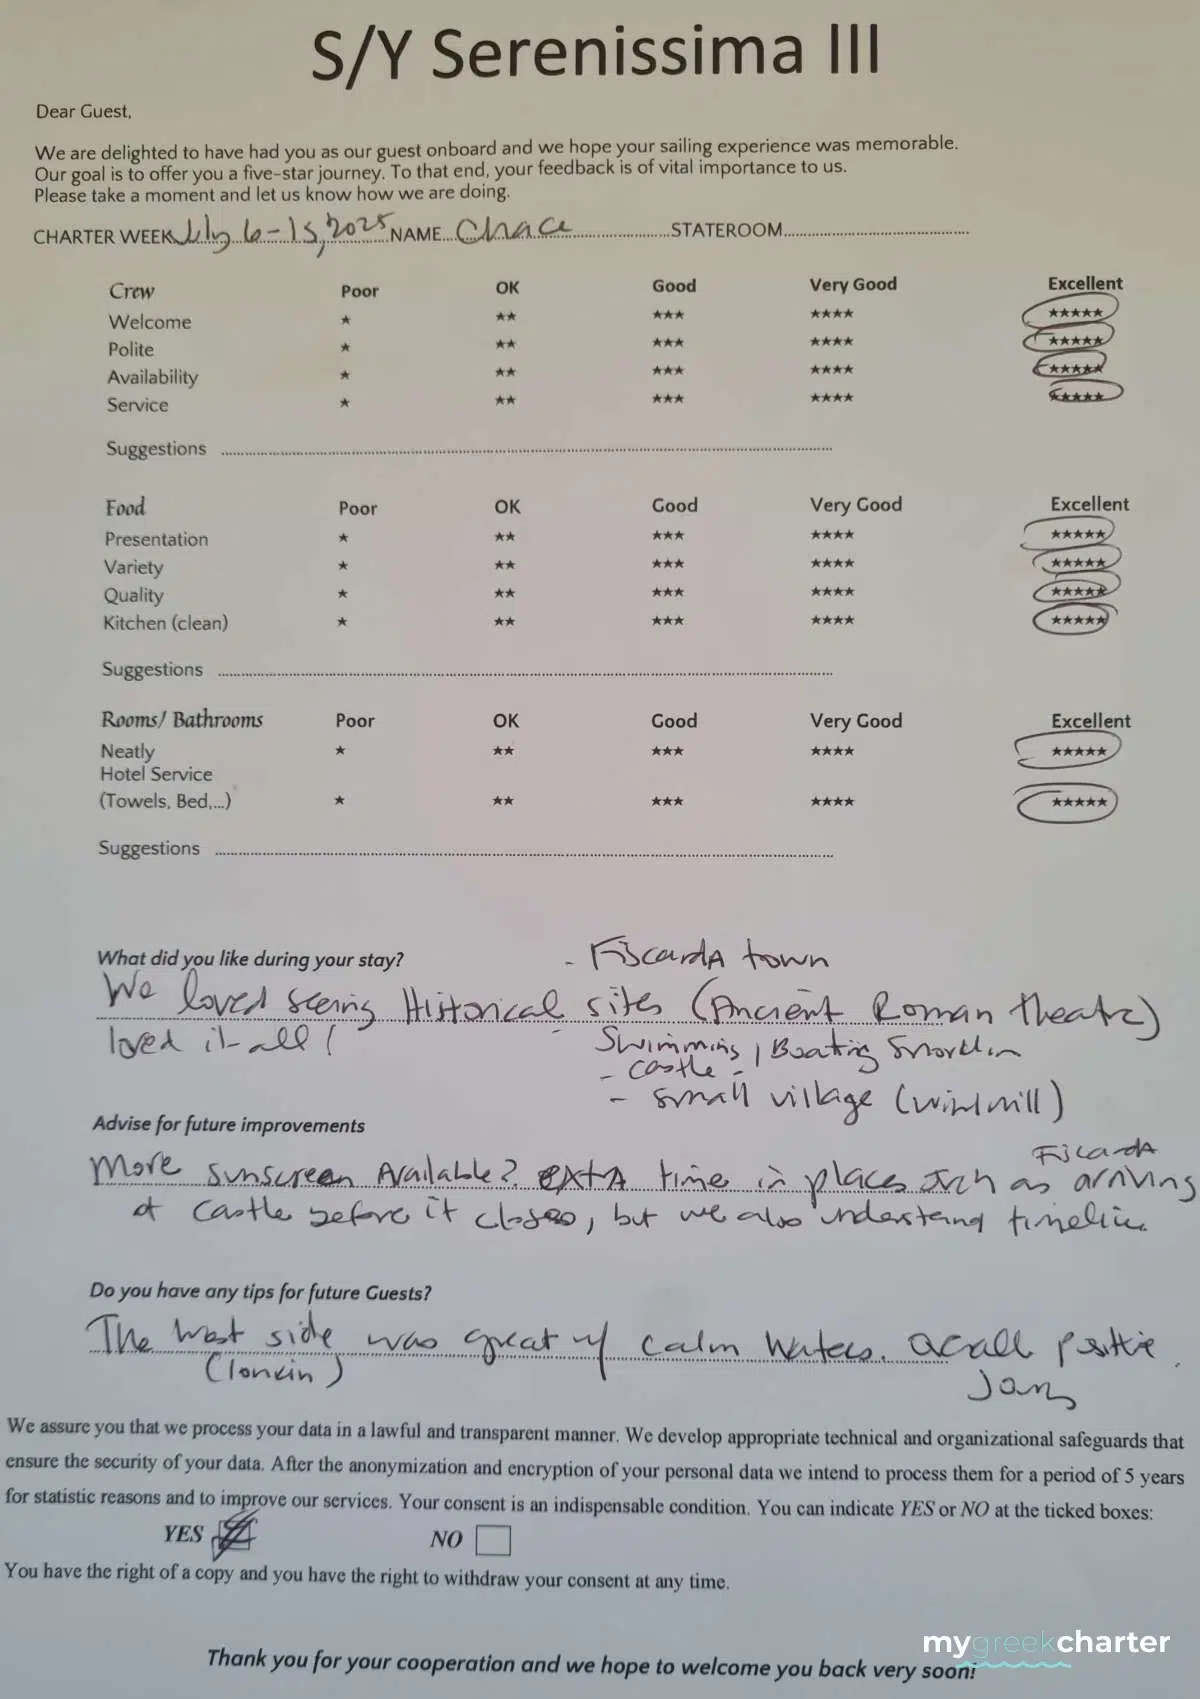 S/Y Serenissima III
Dear Guest,
We are delighted to have had you as our guest onboard and we hope your sailing experience was memorable.
Our goal is to offer you a five-star journey. To that end, your feedback is of vital importance to us.
Please take a moment and let us know how we are doing.
CHARTER WEEK July 6-15, 2025 NAME Chace STATEROOM
Crew Poor OK Good Very Good Excellent
Welcome ★ ★★ ★★★ ★★★★ ★★★★★
Polite ★ ★★ ★★★ ★★★★ ★★★★★
Availability ★ ★★ ★★★ ★★★★ ★★★★★
Service ★ ★★ ★★★ ★★★★ ★★★★★
Suggestions
Food Poor OK Good Very Good Excellent
Presentation ★ ★★ ★★★ ★★★★ ★★★★★
Variety ★ ★★ ★★★ ★★★★ ★★★★★
Quality ★ ★★ ★★★ ★★★★ ★★★★★
Kitchen (clean) ★ ★★ ★★★ ★★★★ ★★★★★
Suggestions
Rooms/ Bathrooms Poor OK Good Very Good Excellent
Neatly ★ ★★ ★★★ ★★★★ ★★★★★
Hotel Service
(Towels, Bed,...) ★ ★★ ★★★ ★★★★ ★★★★★
Suggestions
What did you like during your stay? - FiscardA town
We loved seeing Historical sites (Ancient Roman theatre)
loved it all! - Swimming, Boating
- castle -
- small village (windmill)
Advise for future improvements
FiscardA
More sunscreen Available? extA time in places such as arriving
at castle before it closes, but we also understand
Do you have any tips for future Guests?
The west side was great w/ calm waters.
We assure you that we process your data in a lawful and transparent manner. We develop appropriate technical and organizational safeguards that
ensure the security of your data. After the anonymization and encryption of your personal data we intend to process them for a period of 5 years
for statistic reasons and to improve our services. Your consent is an indispensable condition. You can indicate YES or NO at the ticked boxes:
YES NO
You have the right of a copy and you have the right to withdraw your consent at any time.
mygreekcharter
Thank you for your cooperation and we hope to welcome you back very soon!